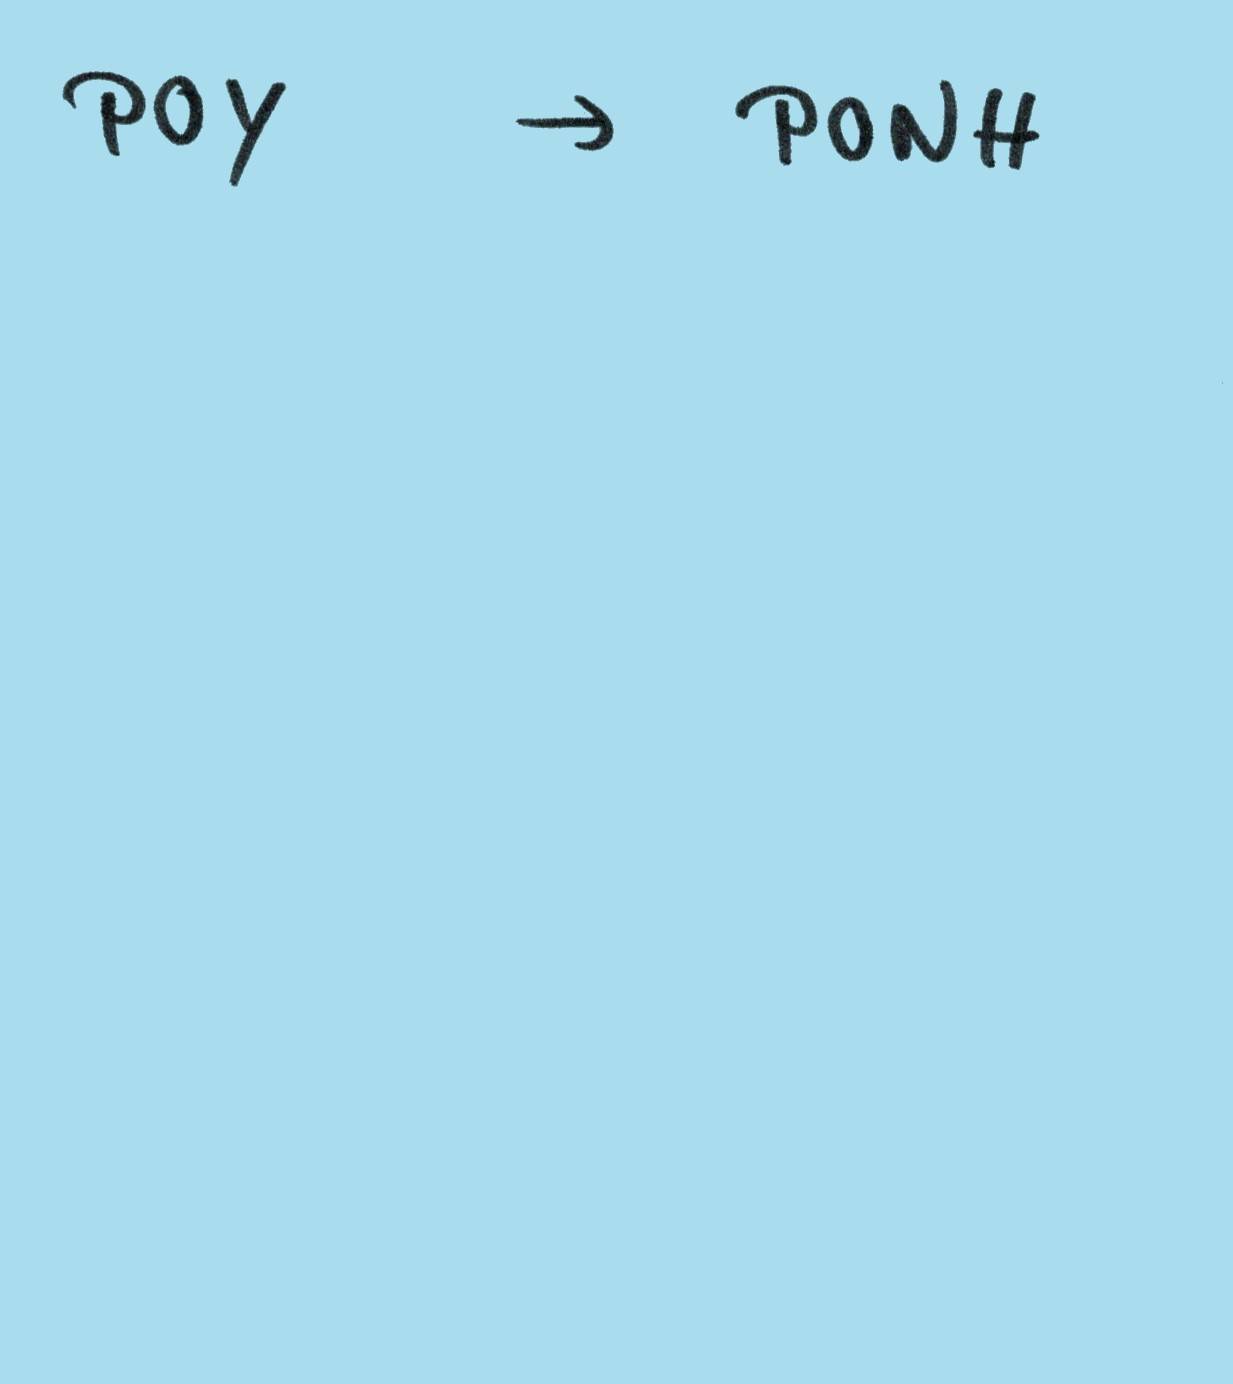 POY → PONH